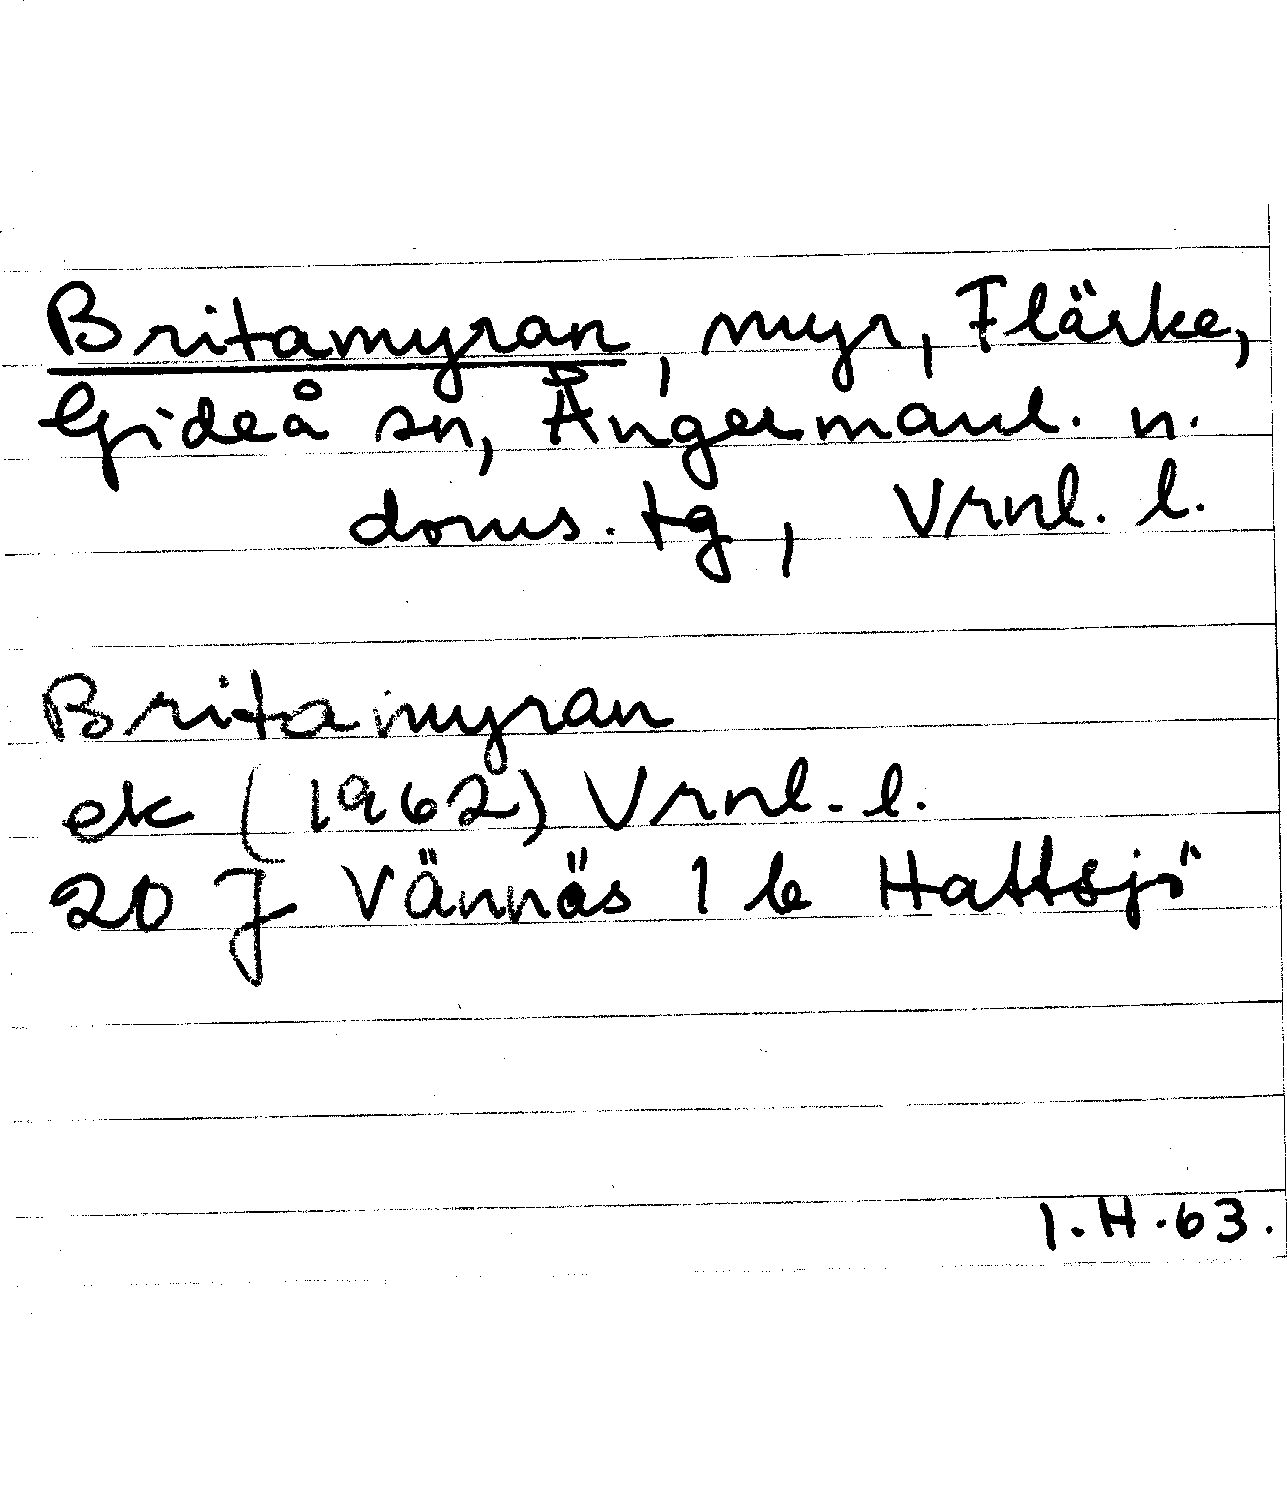 Britamyran, myr, Flärke,
Gideå sn, Ångermanl. n.
doms. tg, Vrnl. l.
Britamyran
ek (1962) Vrnl. l.
20 J Vännäs 1 b Hattsjö
I.H.63.